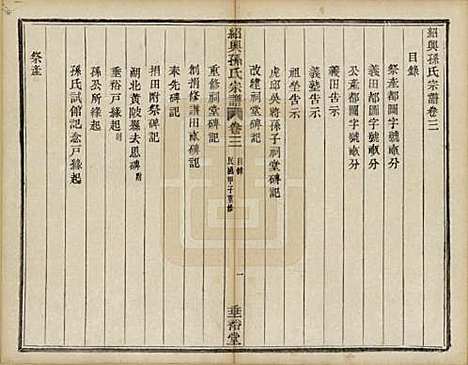 紹興孫氏宗譜卷三
目錄
祭產都圖字號畝分
義田都圖字號畝分
公產都圖字號畝分
義田告示
義塾告示
祖塋告示
虎邱吳將孫子祠堂碑記
改建祠堂碑記
紹興孫氏宗譜 卷三 目錄 民國甲子重修 一 垂裕堂
重修祠堂碑記
創捐修譜田畝碑記
奉先碑記
捐田附祭碑記
湖北黃陂縣夫恩碑附
垂裕戶緣起附
孫公所緣起
孫氏試館記念戶緣起
祭產